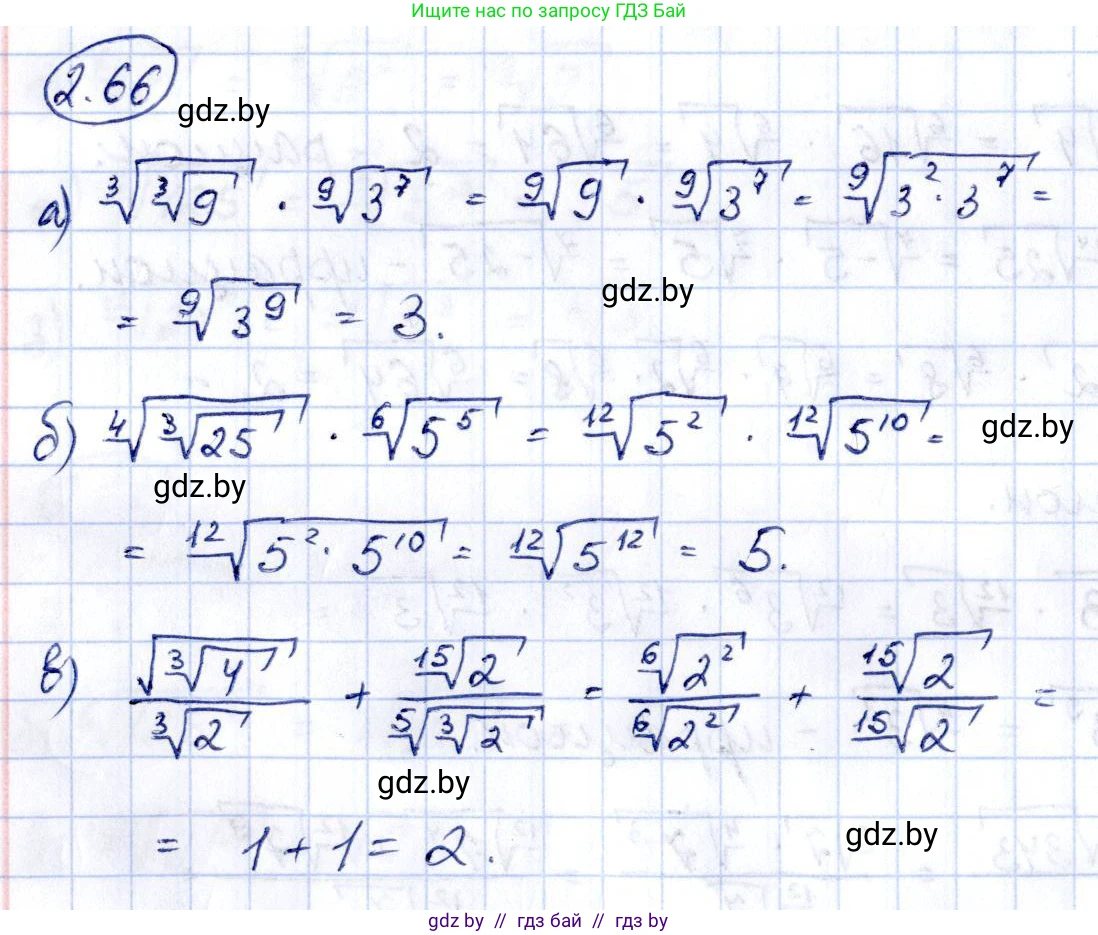 Ищите нас по запросу ГДЗ Бай
2.66
gdz.by
а) ∛(∛9) · ⁹√(3⁷) = ⁹√9 · ⁹√(3⁷) = ⁹√(3² · 3⁷) =
gdz.by
= ⁹√(3⁹) = 3.
б) ⁴√(∛25) · ⁶√(5⁵) = ¹²√(5²) · ¹²√(5¹⁰) =
gdz.by
gdz.by
= ¹²√(5² · 5¹⁰) = ¹²√(5¹²) = 5.
в) √(∛4) / ∛2 + ¹⁵√2 / ⁵√(∛2) = ⁶√(2²) / ⁶√(2²) + ¹⁵√2 / ¹⁵√2 =
gdz.by
= 1 + 1 = 2.
gdz.by
gdz.by // гдз бай // гдз by